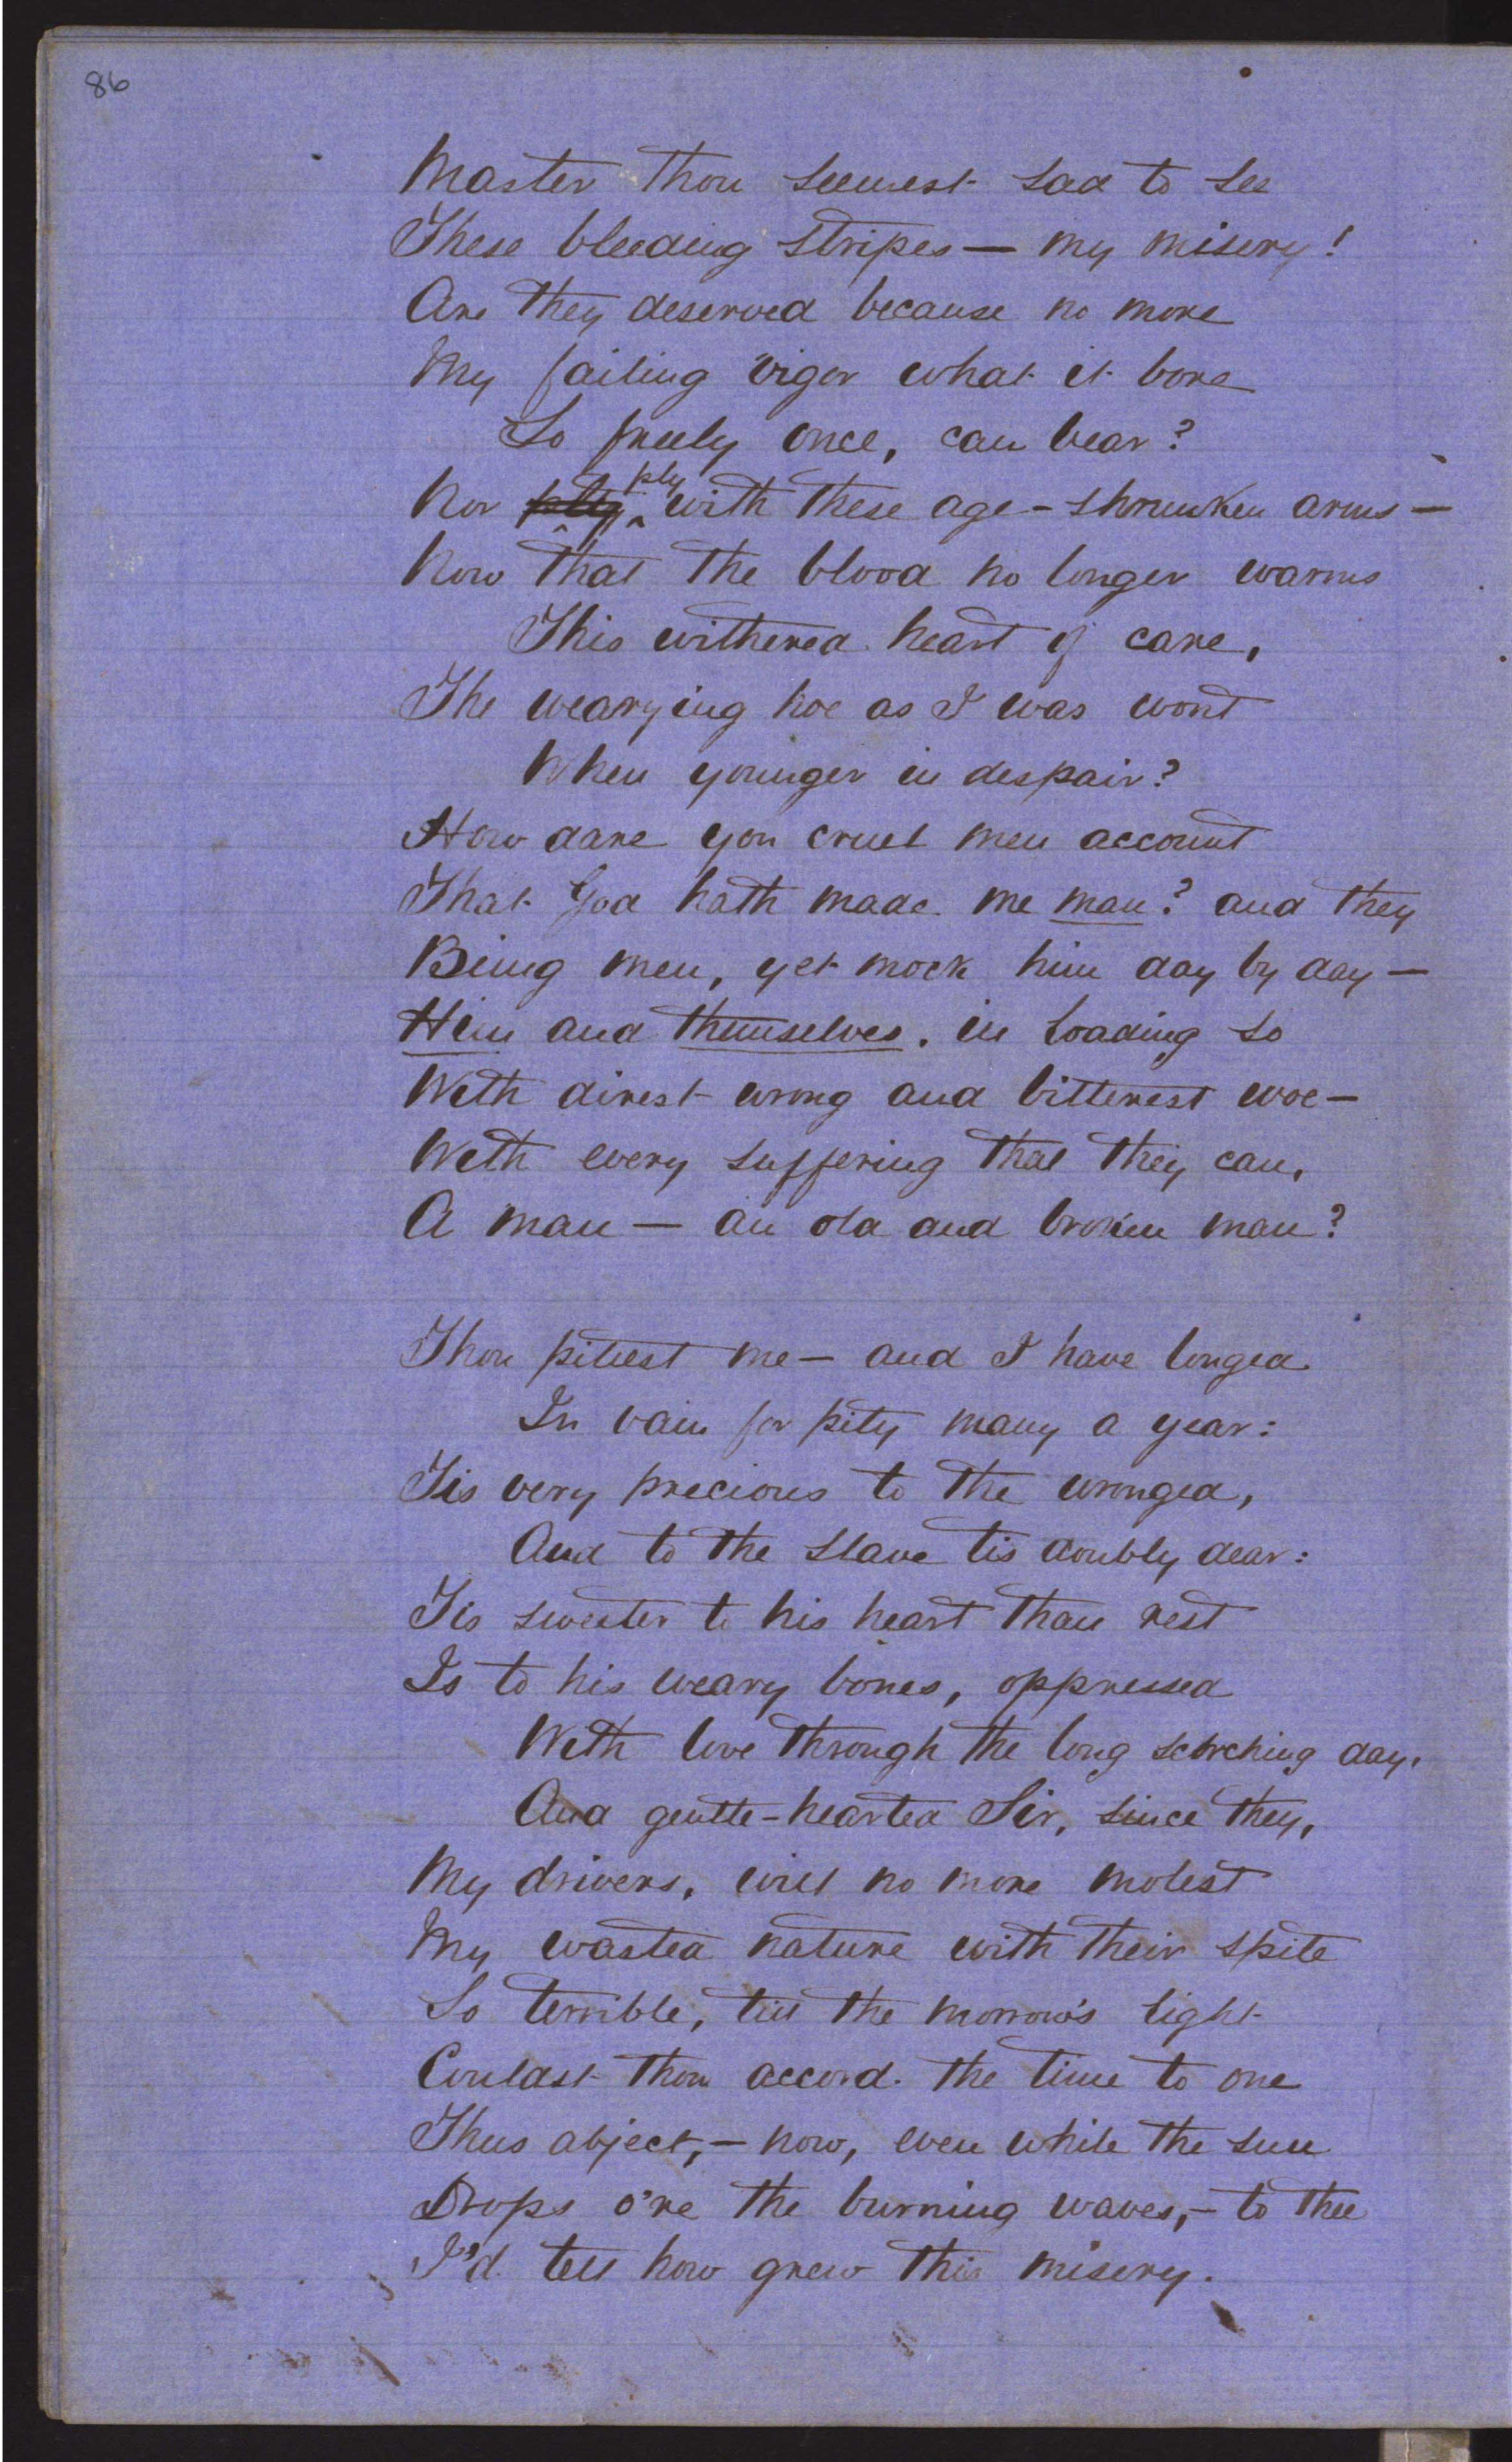 86
Master thou seemest sad to see
These bleeding stripes — my misery!
Are they deserved because no more
My failing vigor what it bore
So freely once, can bear?
Nor ply with these age-shrunken arms —
Now that the blood no longer warms
This withered heart of care,
The wearying hoe as I was wont
When younger in despair?
How dare you cruel men account
That God hath made me man? and they
Being men, yet mock him day by day —
Him and themselves, in loading so
With direst wrong and bitterest woe —
With every suffering that they can,
A man — an old and broken man?
Thou pitiest me — and I have longed
In vain for pity many a year:
Tis very precious to the wronged,
And to the slave tis doubly dear:
Tis sweeter to his heart than rest
Is to his weary bones, oppressed
With love through the long scorching day.
And gentle-hearted Sir, since they,
My drivers, will no more molest
My wasted nature with their spite
So terrible, till the morrow's light
Couldst thou accord the time to one
Thus abject, — now, even while the sun
Drops o're the burning waves, — to thee
I'd tell how grew this misery.